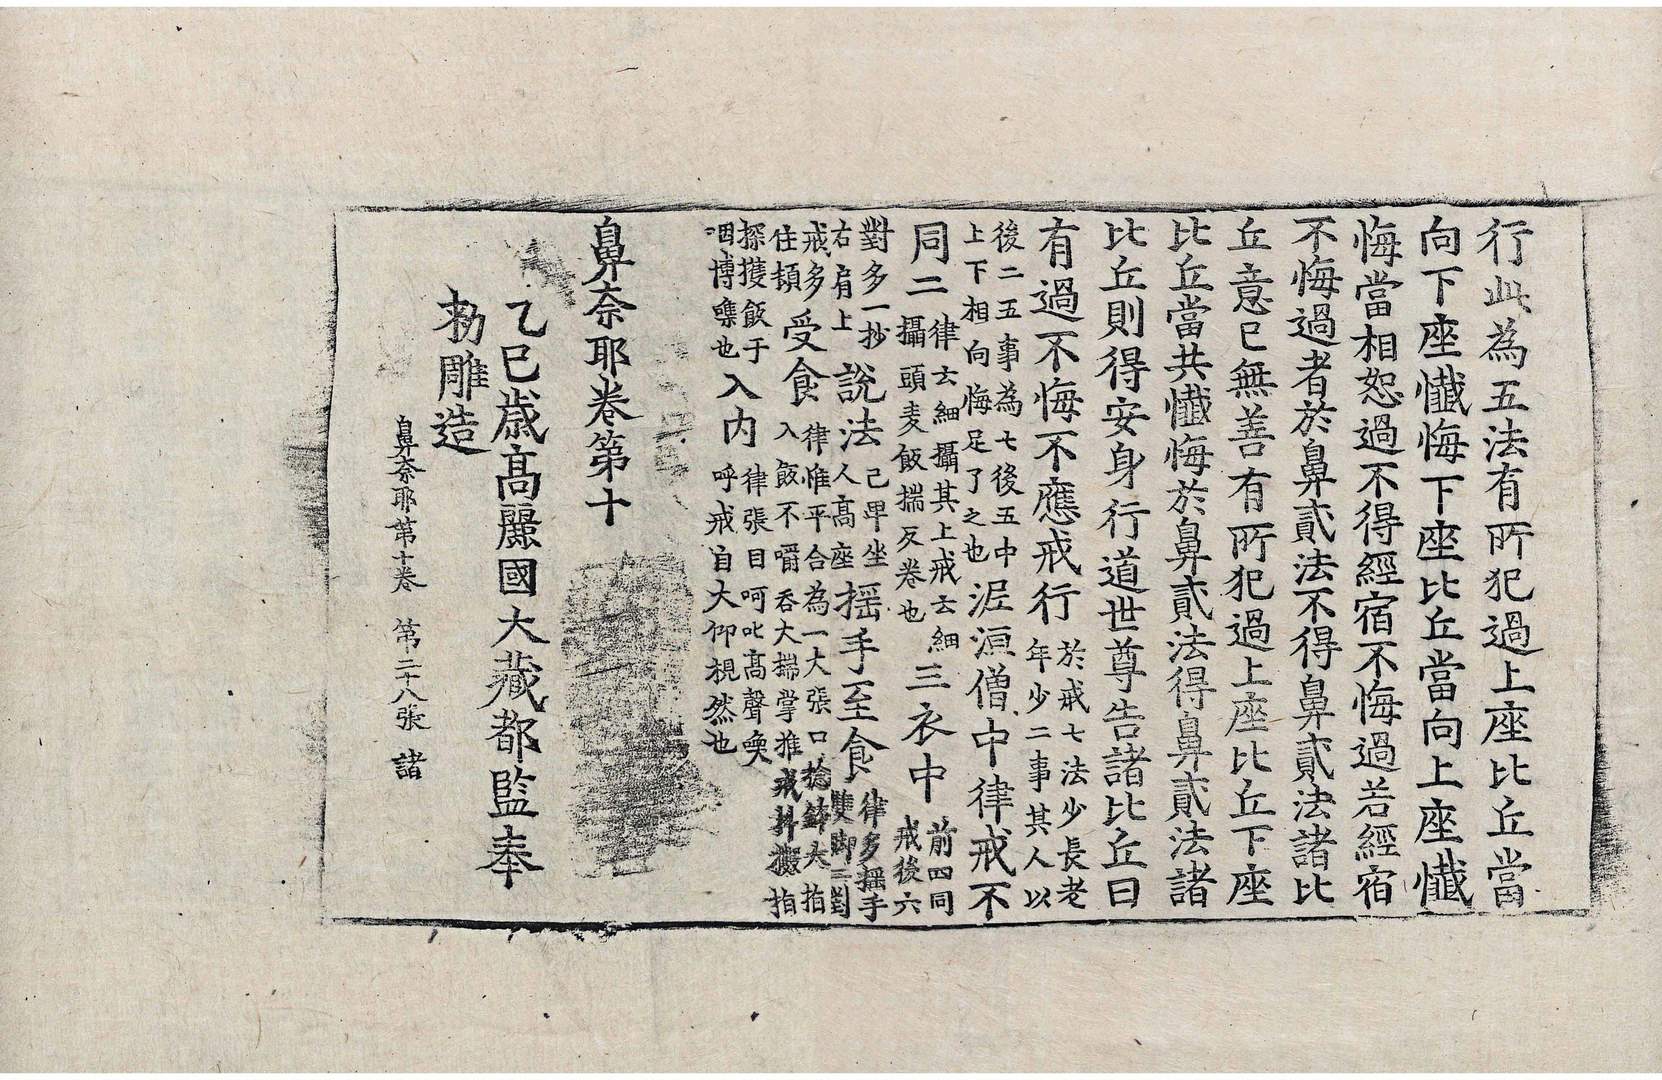 行此為五法有所犯過上座比丘當
向下座懺悔下座比丘當向上座懺
悔當相恕過不得經宿不悔過若經宿
不悔過者於鼻貳法不得鼻貳法諸比
丘意已無善有所犯過上座比丘下座
比丘當共懺悔於鼻貳法得鼻貳法諸
比丘則得安身行道世尊告諸比丘曰
有過不悔不應戒行於戒七法少長老年少二事其人以
後二五事為七後五中上下相向悔足了之也泥洹僧中律戒不
同二律云細攝其上戒云細攝頭麦飯揣反卷也三衣中前四同戒後六
對多一抄右肩上說法己卑坐人高座揺手至食律多揺手雙脚三對
戒多住頓受食律惟平合為一大張口捻鉢大拍入飯不嚼吞大揣掌推戒抖擻拍
探擭飯于咽博㗱也入内律張目呵叱高聲喚呼戒自大仰視然也
鼻奈耶卷第十
乙巳歳高麗國大藏都監奉
勑雕造
鼻奈耶第十卷 第二十八張 諸